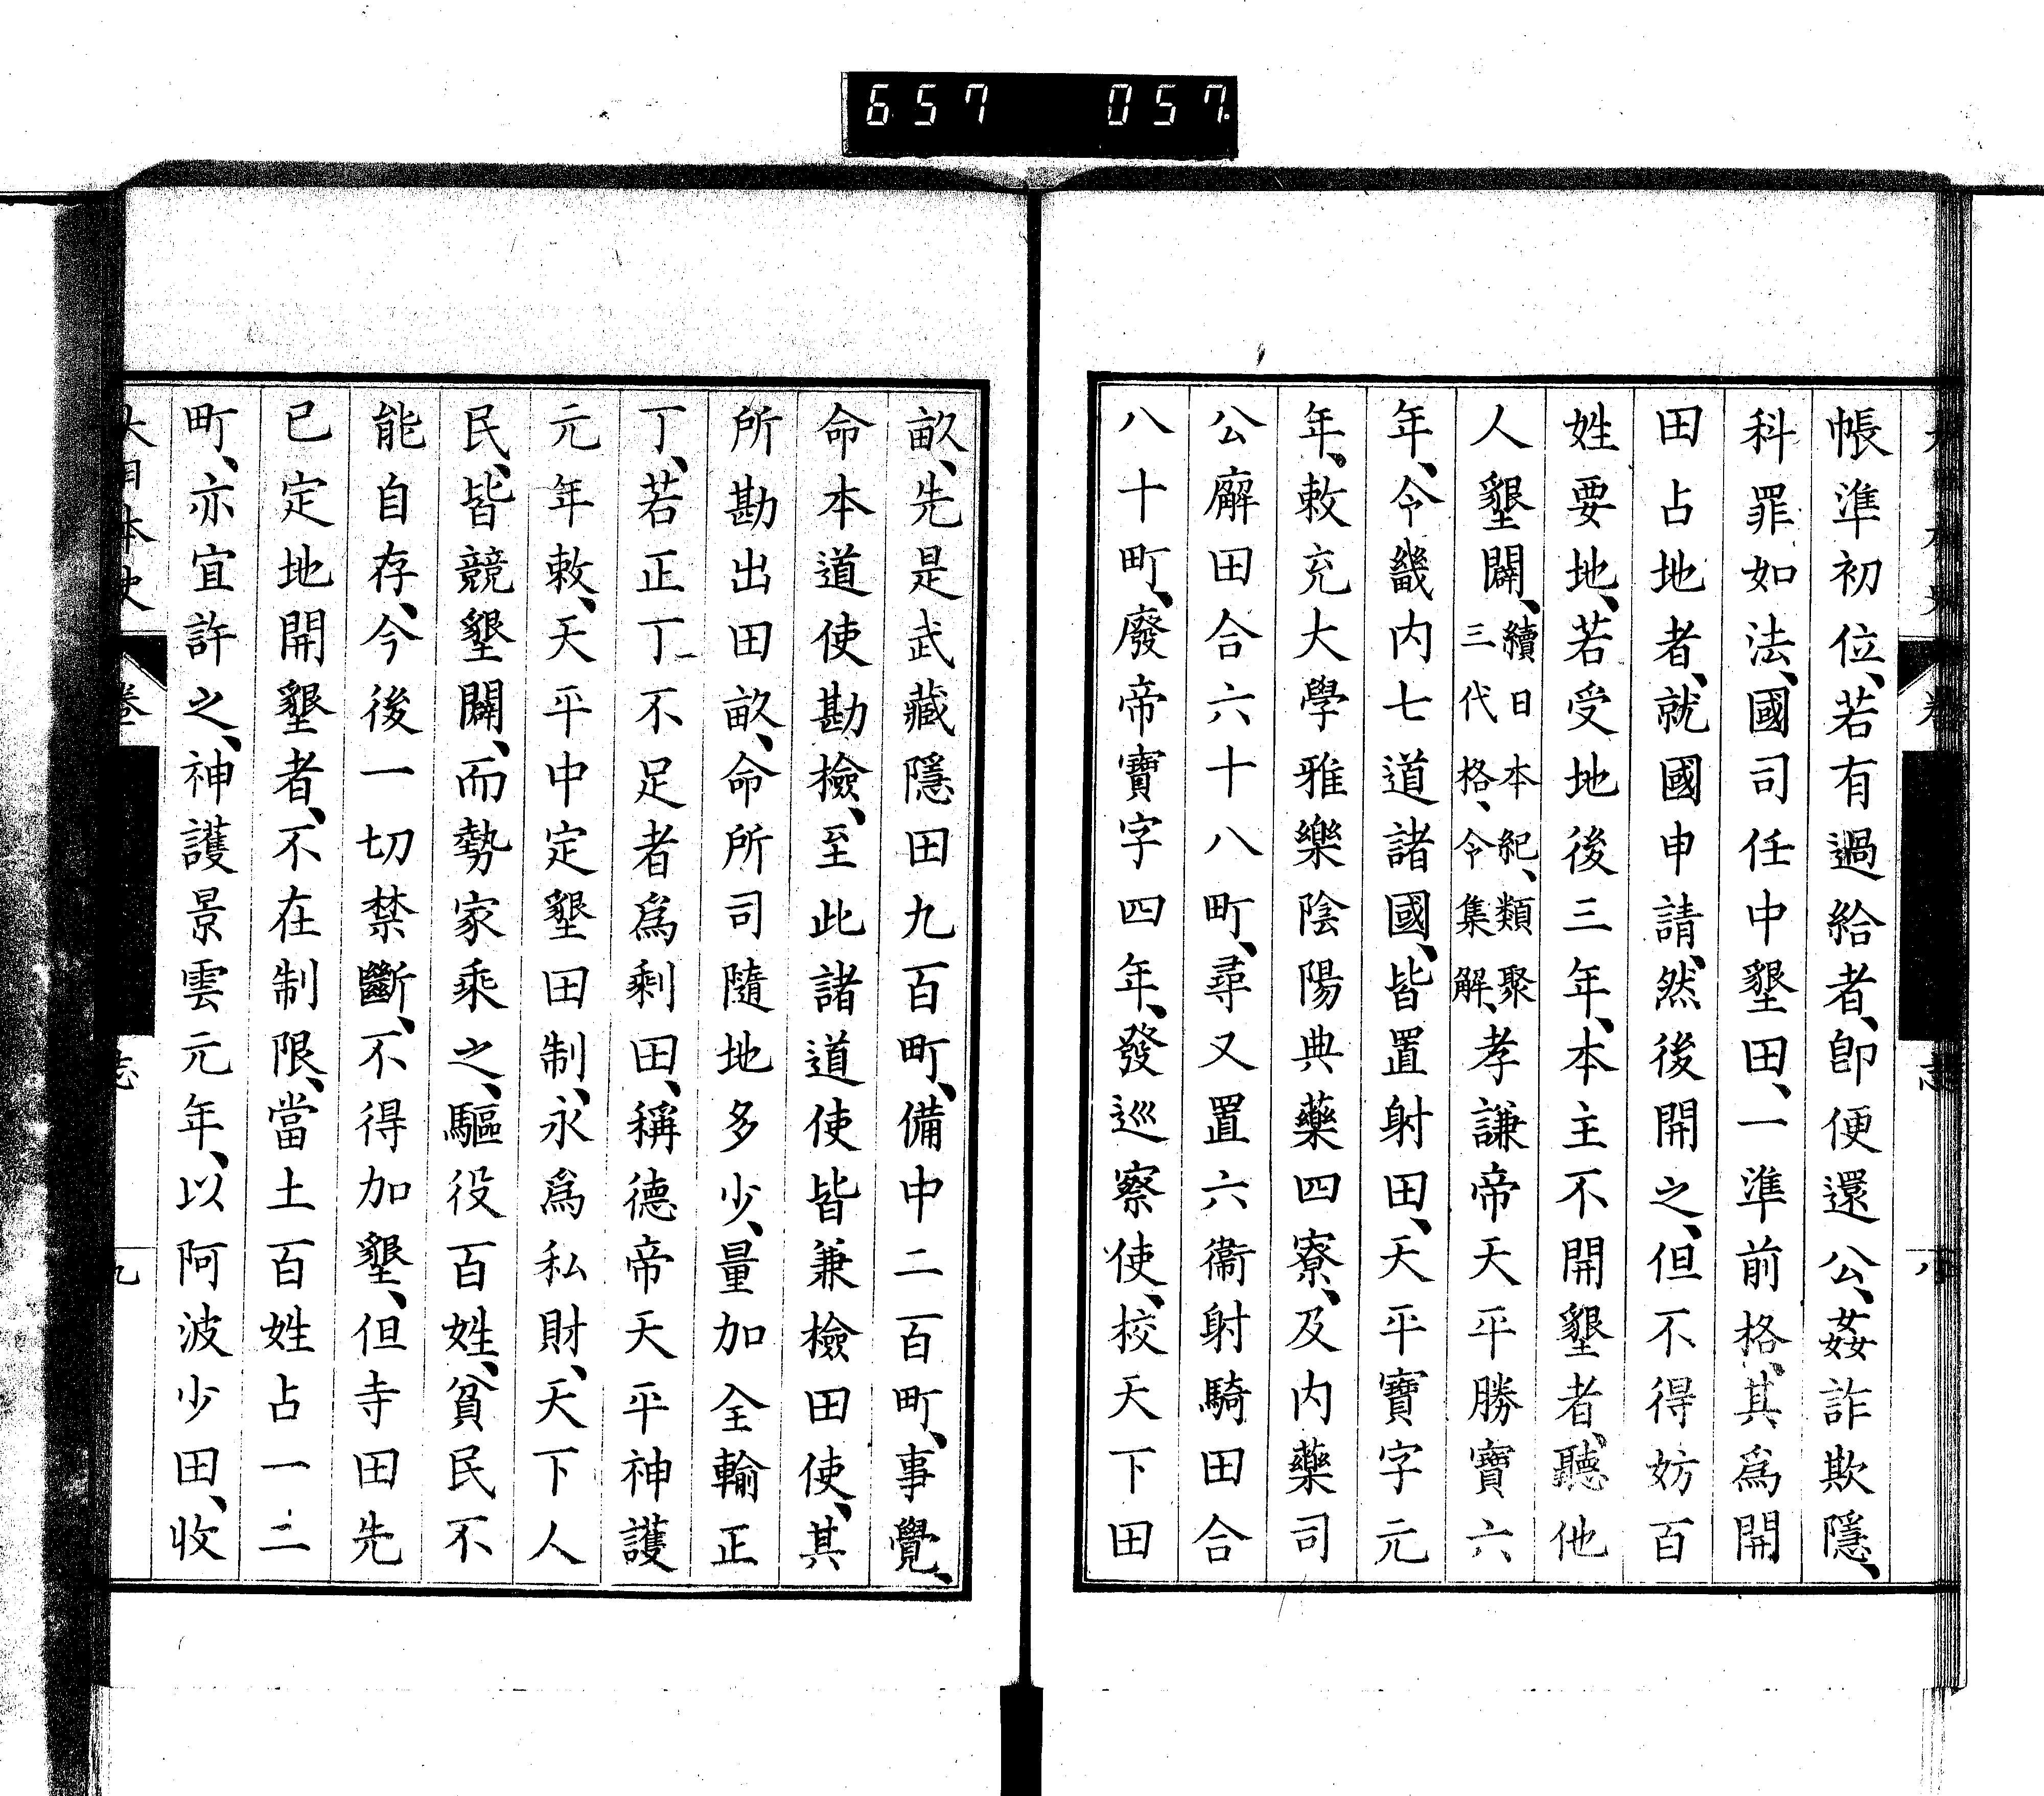 657 057
帳準初位、若有過給者、卽便還公、姦詐欺隱、
科罪如法、國司任中墾田、一準前格、其爲開
田占地者、就國申請、然後開之、但不得妨百
姓要地、若受地後三年、本主不開墾者、聽他
人墾闢、續日本紀、類聚三代格、令集解、孝謙帝天平勝寶六
年、令畿內七道諸國、皆置射田、天平寶字元
年、敕充大學雅樂陰陽典藥四寮、及內藥司
公廨田合六十八町、尋又置六衞射騎田合
八十町、廢帝寶字四年、發巡察使、校天下田
畝、先是武藏隱田九百町、備中二百町、事覺、
命本道使勘檢、至此諸道使皆兼檢田使、其
所勘出田畝、命所司隨地多少、量加全輸正
丁、若正丁不足者爲剩田、稱德帝天平神護
元年敕、天平中定墾田制、永爲私財、天下人
民、皆競墾闢、而勢家乘之、驅役百姓、貧民不
能自存、今後一切禁斷、不得加墾、但寺田先
已定地開墾者、不在制限、當土百姓占一二
町、亦宜許之、神護景雲元年、以阿波少田、收
大日本史 卷 志 九